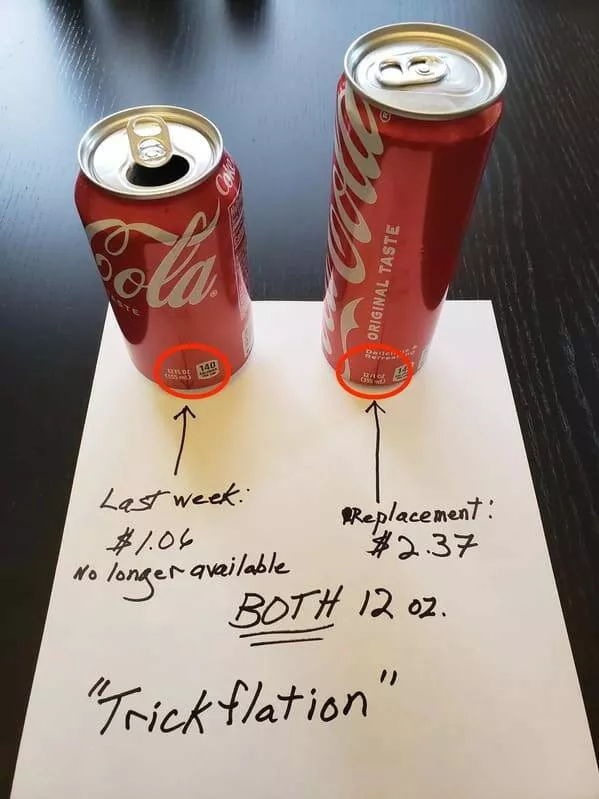 Cola
Coke
Coca-Cola
ORIGINAL TASTE
12 FL OZ
(355 mL)
140
12 FL OZ
(355 mL)
Last week:
$1.06
No longer available
Replacement:
$2.37
BOTH 12 oz.
"Trickflation"